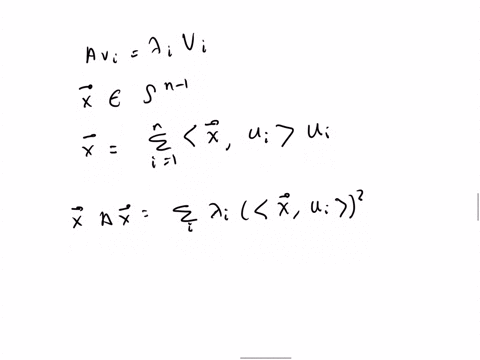 Av_i = λ_i v_i
x⃗ ∈ S^{n-1}
x⃗ = Σ_{i=1}^{n} <x⃗, u_i> u_i
x⃗ A x⃗ = Σ_i λ_i (<x⃗, u_i>)^2